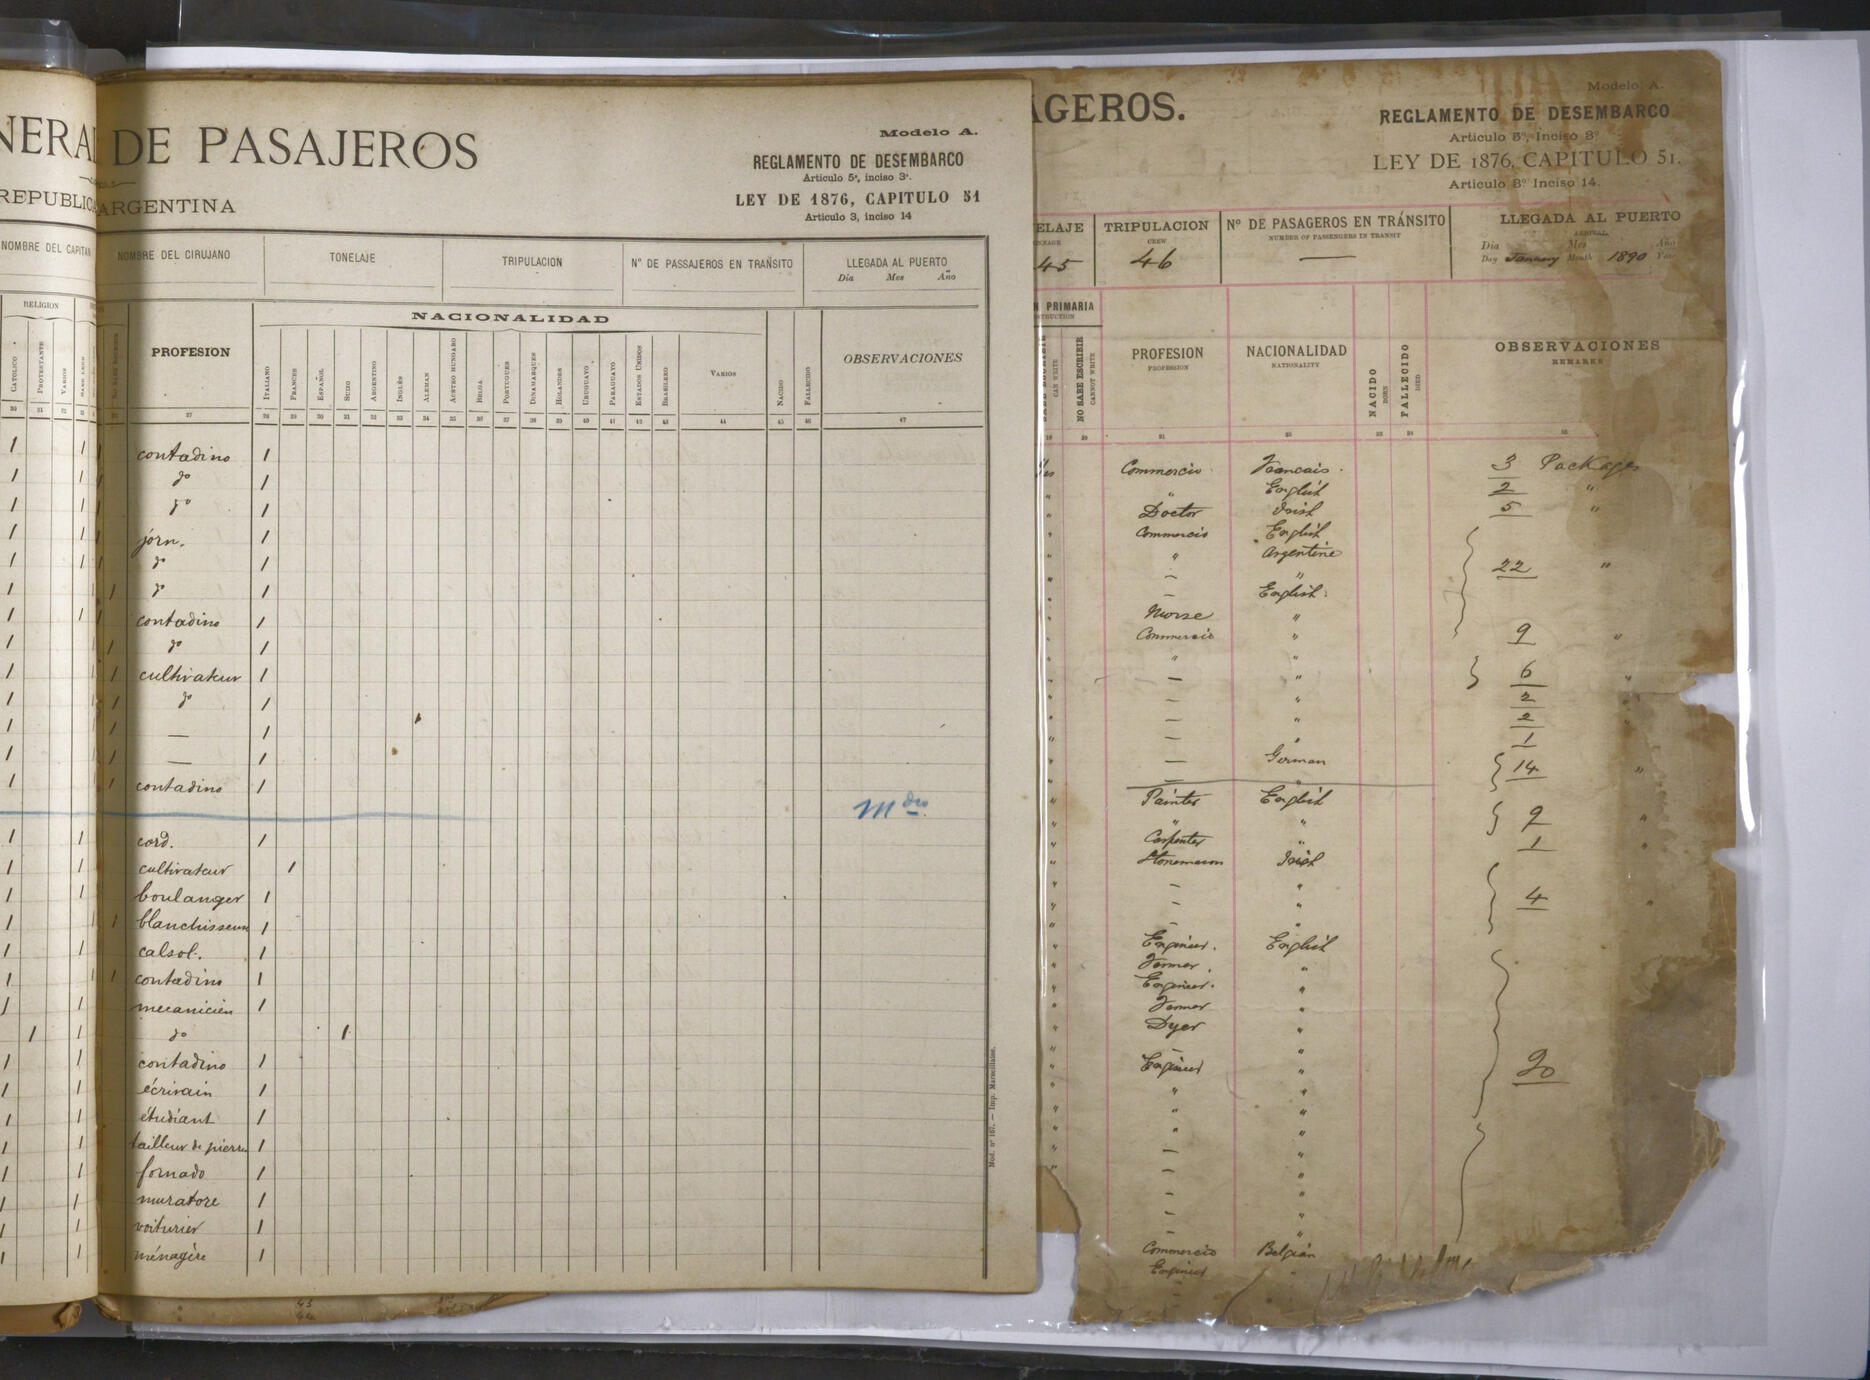 NERAL DE PASAJEROS
REPUBLICA ARGENTINA
Modelo A.
REGLAMENTO DE DESEMBARCO
Articulo 5º, inciso 3º.
LEY DE 1876, CAPITULO 51
Articulo 3, inciso 14
NOMBRE DEL CAPITAN
NOMBRE DEL CIRUJANO
TONELAJE
TRIPULACION
Nº DE PASSAJEROS EN TRANSITO
LLEGADA AL PUERTO
Dia Mes Año
RELIGION
CATOLICO
PROTESTANTE
VARIOS
PROFESION
NACIONALIDAD
ITALIANO
FRANCES
ESPAÑOL
SUIZO
ARGENTINO
INGLÉS
ALEMAN
AUSTRO HUNGARO
BELGA
PORTUGUES
DINAMARQUES
HOLANDES
URUGUAYO
PARAGUAYO
ESTADOS UNIDOS
BRASILERO
VARIOS
NACIDO
FALLECIDO
OBSERVACIONES
27 28 29 30 31 32 33 34 35 36 37 38 39 40 41 42 43 44 45 46 47
contadino 1
dº 1
dº 1
jorn. 1
dº 1
dº 1
contadino 1
dº 1
cultivateur 1
dº 1
— 1
— 1
contadino 1
Mdeo.
cord. 1
cultivateur 1
boulanger 1
blanchisseuse 1
calsol. 1
contadino 1
mecanicien 1
dº 1
contadino 1
écrivain 1
étudiant 1
tailleur de pierre 1
fornado 1
muratore 1
voiturier 1
ménagère 1
Mod. nº 157. — Imp. Marseillaise.
AGEROS.
Modelo A.
REGLAMENTO DE DESEMBARCO
Articulo 5º, Inciso 3º
LEY DE 1876, CAPITULO 51.
Articulo 3º Inciso 14.
ELAJE
NNAGE
45
TRIPULACION
CREW
46
Nº DE PASAGEROS EN TRÁNSITO
NUMBER OF PASSENGERS IN TRANSIT
—
LLEGADA AL PUERTO
ARRIVAL
Dia Mes Año
Day January Month 1890 Year
N PRIMARIA
STRUCTION
SABE ESCRIBIR
CAN WRITE
NO SABE ESCRIBIR
CANNOT WRITE
PROFESION
PROFESSION
NACIONALIDAD
NATIONALITY
NACIDO
BORN
FALLECIDO
DIED
OBSERVACIONES
REMARKS
Commercio Francais. 3 Packages
" English 2 "
Doctor Irish 5 "
Commercio English
" Argentine
— " 22 "
— English.
Nurse "
Commercio " 9 "
" "
— " 6 "
— " 2 "
— " 2 "
— " 1
— German 14 "
— "
Painter English
" " 9 "
Carpenter " 1 "
Stonemason Irish
— "
— " 4 "
— "
Engineer. English
Farmer. "
Engineer. "
Farmer "
Dyer "
— "
Engineer " 20
" "
" "
" "
— "
— "
— "
— "
— "
Commercio Belgian
Engineer "